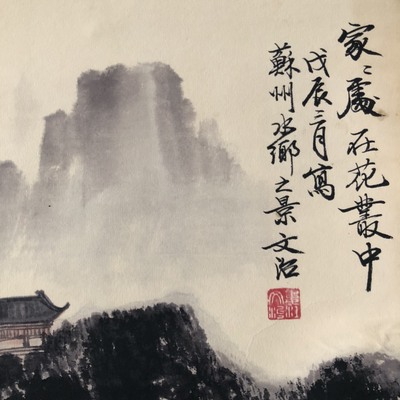 家〻處在花叢中
戊辰三月寫
蘇州水鄉之景文治